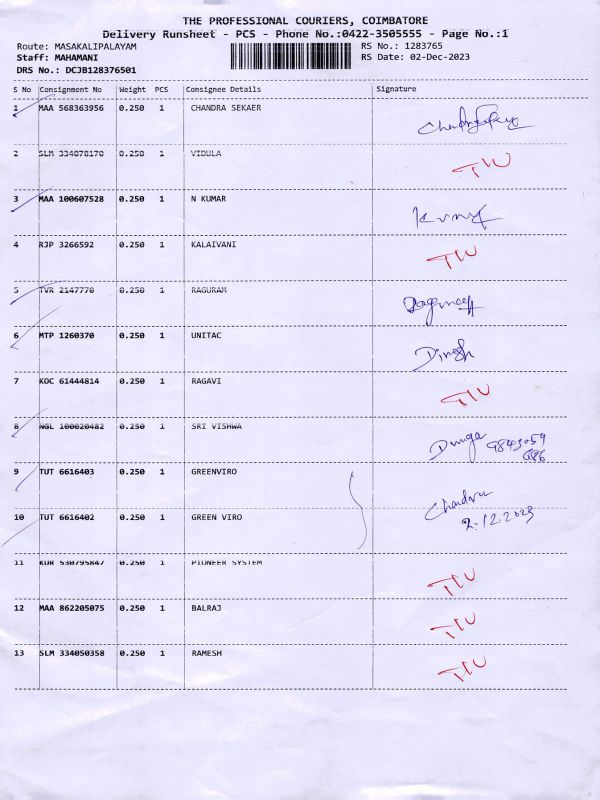 THE PROFESSIONAL COURIERS, COIMBATORE
Delivery Runsheet - PCS - Phone No.:0422-3505555 - Page No.:1
Route: MASAKALIPALAYAM RS No.: 1283765
Staff: MAHAMANI RS Date: 02-Dec-2023
DRS No.: DCJB128376501
S No Consignment No Weight PCS Consignee Details Signature
1 MAA 568363956 0.250 1 CHANDRA SEKAER
2 SLM 334078170 0.250 1 VIDULA
3 MAA 100607528 0.250 1 N KUMAR Kumar
4 RJP 3266592 0.250 1 KALAIVANI
5 TVR 2147770 0.250 1 RAGURAM
6 MTP 1260370 0.250 1 UNITAC Dinesh
7 KOC 61444814 0.250 1 RAGAVI
8 NGL 100020482 0.250 1 SRI VISHWA Durga
9 TUT 6616403 0.250 1 GREENVIRO Chandru
10 TUT 6616402 0.250 1 GREEN VIRO 2.12.2023
11 KUR 530795847 0.250 1 PIONEER SYSTEM
12 MAA 862205075 0.250 1 BALRAJ
13 SLM 334050358 0.250 1 RAMESH